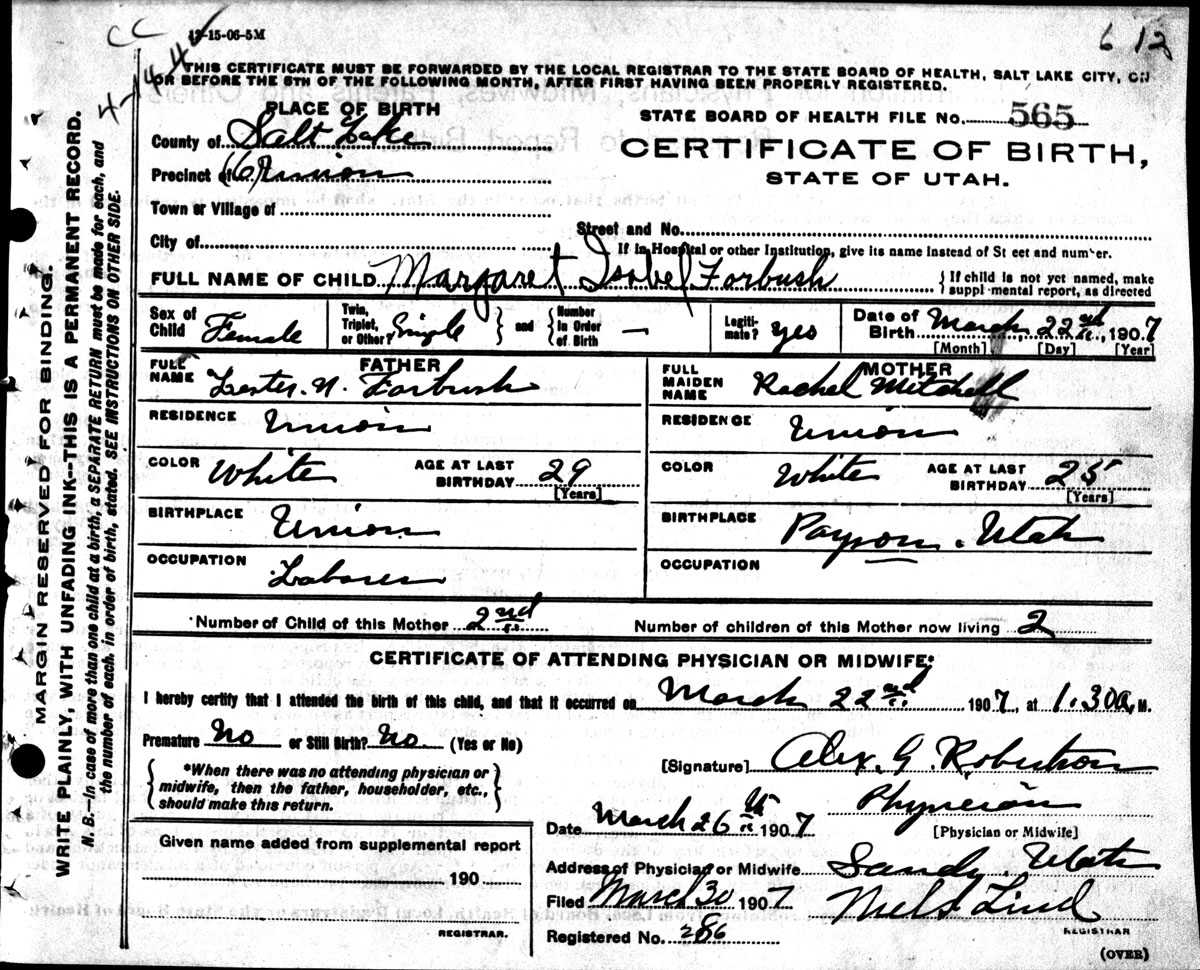 CC
12-15-06-5M
4-14-40
6 12
THIS CERTIFICATE MUST BE FORWARDED BY THE LOCAL REGISTRAR TO THE STATE BOARD OF HEALTH, SALT LAKE CITY, ON
OR BEFORE THE 5TH OF THE FOLLOWING MONTH, AFTER FIRST HAVING BEEN PROPERLY REGISTERED.
PLACE OF BIRTH
County of Salt Lake
Precinct of Union
Town or Village of
City of
STATE BOARD OF HEALTH FILE No. 565
CERTIFICATE OF BIRTH,
STATE OF UTAH.
Street and No.
If in Hospital or other Institution, give its name instead of St eet and number.
FULL NAME OF CHILD Margaret Isobel Forbush
{If child is not yet named, make
suppl mental report, as directed
Sex of Child Female
Twin, Triplet, or Other? Single
and
Number In Order of Birth —
Legiti-mate? yes
Date of Birth March 22nd, 1907
[Month] [Day] [Year]
FATHER
FULL NAME Lester N. Forbush
RESIDENCE Union
COLOR White
AGE AT LAST BIRTHDAY 29
[Years]
BIRTHPLACE Union
OCCUPATION Laborer
MOTHER
FULL MAIDEN NAME Rachel Mitchell
RESIDENCE Union
COLOR White
AGE AT LAST BIRTHDAY 25
[Years]
BIRTHPLACE Payson. Utah
OCCUPATION
Number of Child of this Mother 2nd
Number of children of this Mother now living 2
CERTIFICATE OF ATTENDING PHYSICIAN OR MIDWIFE*
I hereby certify that I attended the birth of this child, and that it occurred on March 22nd 1907, at 1.30a, M.
Premature No or Still Birth? No. (Yes or No)
{*When there was no attending physician or
midwife, then the father, householder, etc.,
should make this return.}
[Signature] Alex. G. Robertson
Physician
[Physician or Midwife]
Date March 26th 1907
Address of Physician or Midwife Sandy. Utah
Given name added from supplemental report
190
REGISTRAR.
Filed March 30 1907
Nels Lind
REGISTRAR
Registered No. 286
(OVER)
MARGIN RESERVED FOR BINDING.
WRITE PLAINLY, WITH UNFADING INK--THIS IS A PERMANENT RECORD.
N. B.—In case of more than one child at a birth, a SEPARATE RETURN must be made for each, and
the number of each, in order of birth, stated. SEE INSTRUCTIONS ON OTHER SIDE.